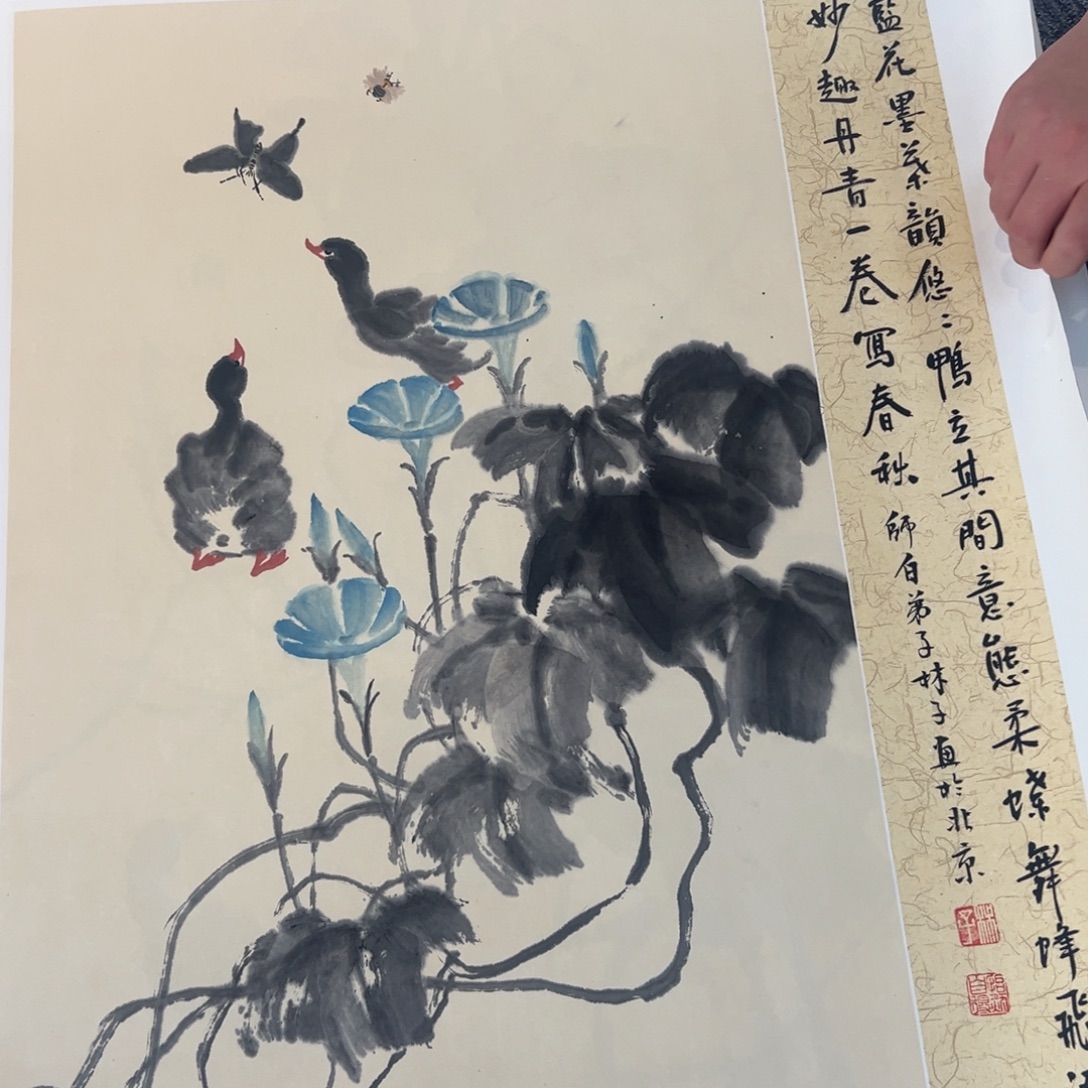 藍花墨葉韻悠〻鴨立其間意態柔蝶舞蜂飛
妙趣丹青一卷寫春秋
師白弟子妹子画於北京